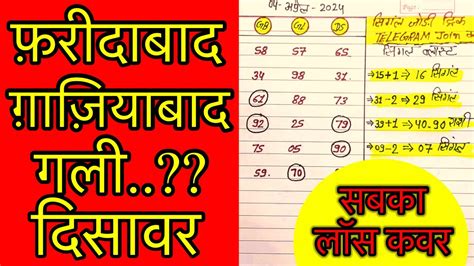 फ़रीदाबाद
ग़ाज़ियाबाद
गली..??
दिसावर
04-अप्रैल-2024
GB GL DS
58 57 65
34 98 31
61 88 73
92 25 79
75 05 90
59. 70
सिंगल जोडी
TELEGRAM Join
सिंगल
→15+1→ 16 सिंगल
→31-2→ 29 सिंगल
→39+1→ 40-90 राशी
→09-2→ 07 सिंगल
सबका
लॉस कवर